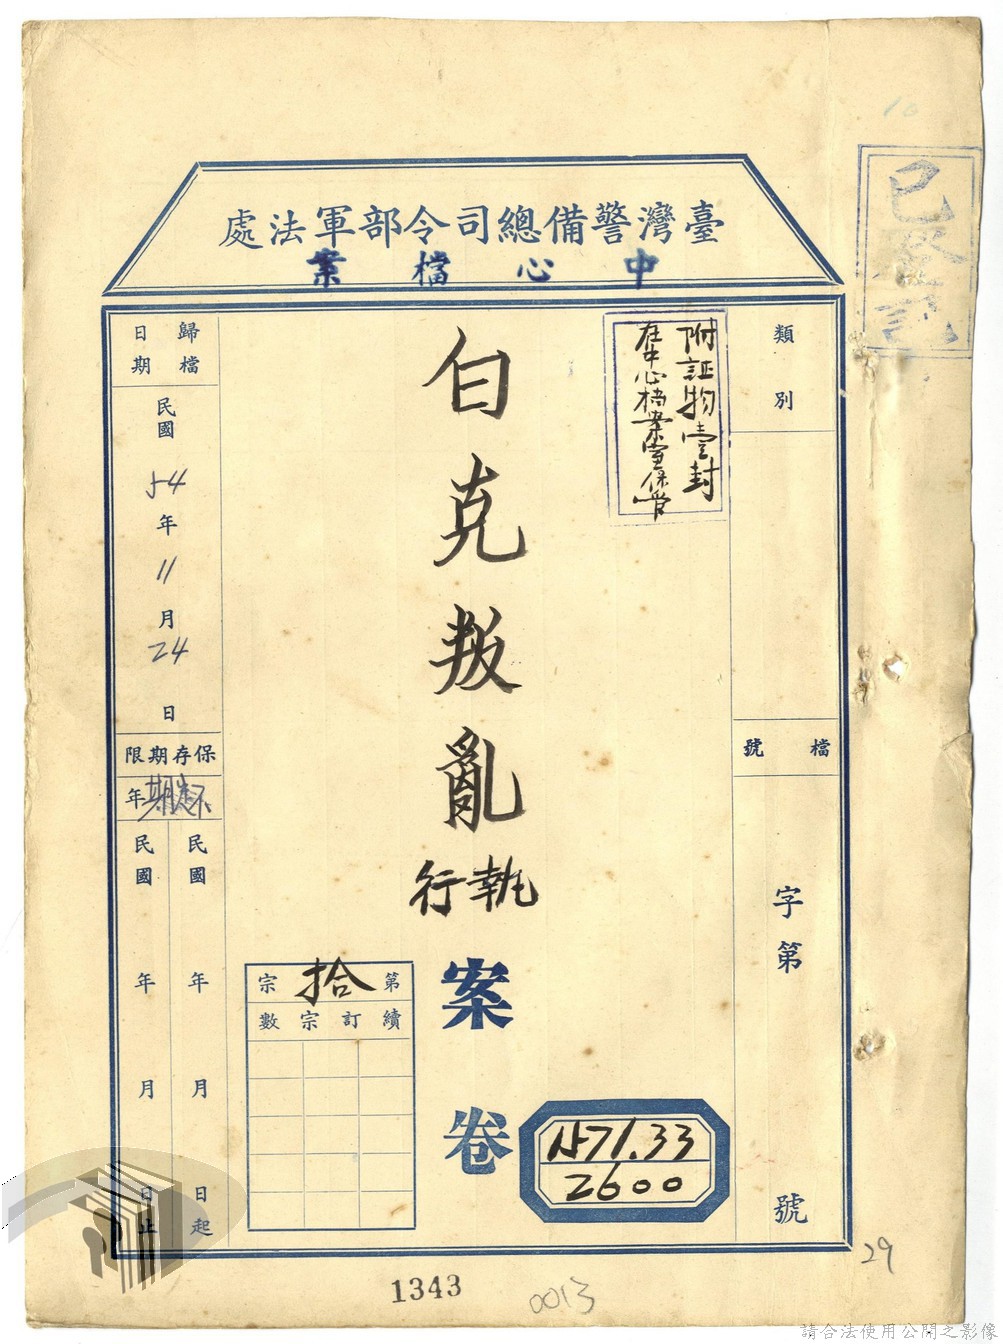 臺灣警備總司令部軍法處
中心檔案
已登記
類別
附証物壹封
在中心档案室保管
檔號
字第
號
白克叛亂執行案卷
1571.33
2600
第拾宗
續訂宗數
歸檔日期
民國54年11月24日
保存期限
年
民國 年 月 日起
民國 年 月 日止
29
1343
0013
請合法使用公開之影像